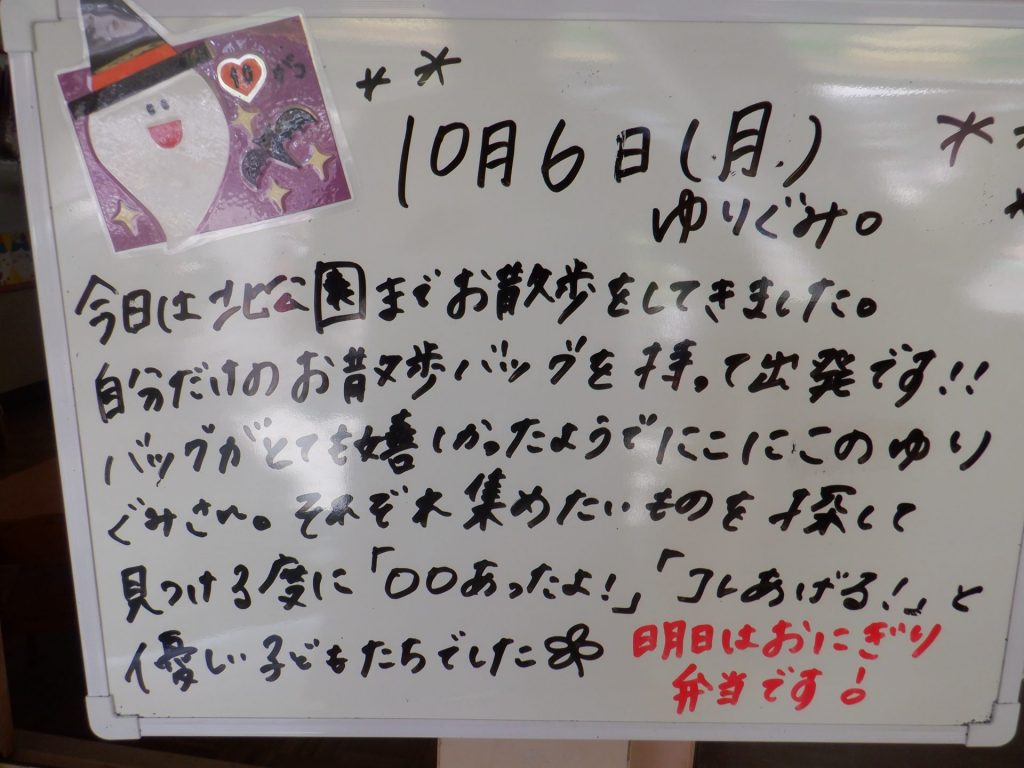 10がつ
10月6日(月.)
ゆりぐみ。
今日は北公園までお散歩をしてきました。
自分だけのお散歩バッグを持って出発です!!
バッグがとても嬉しかったようでにこにこのゆり
ぐみさん。それぞれ集めたいものを探して
見つける度に「〇〇あったよ!」「コレあげる!」と
優しい子どもたちでした
明日はおにぎり
弁当です!